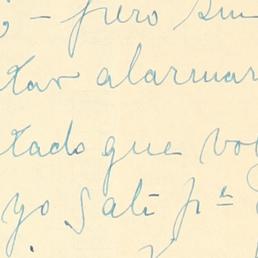 - pero sin
tar alarmar
tado que vo
yo Sali pª